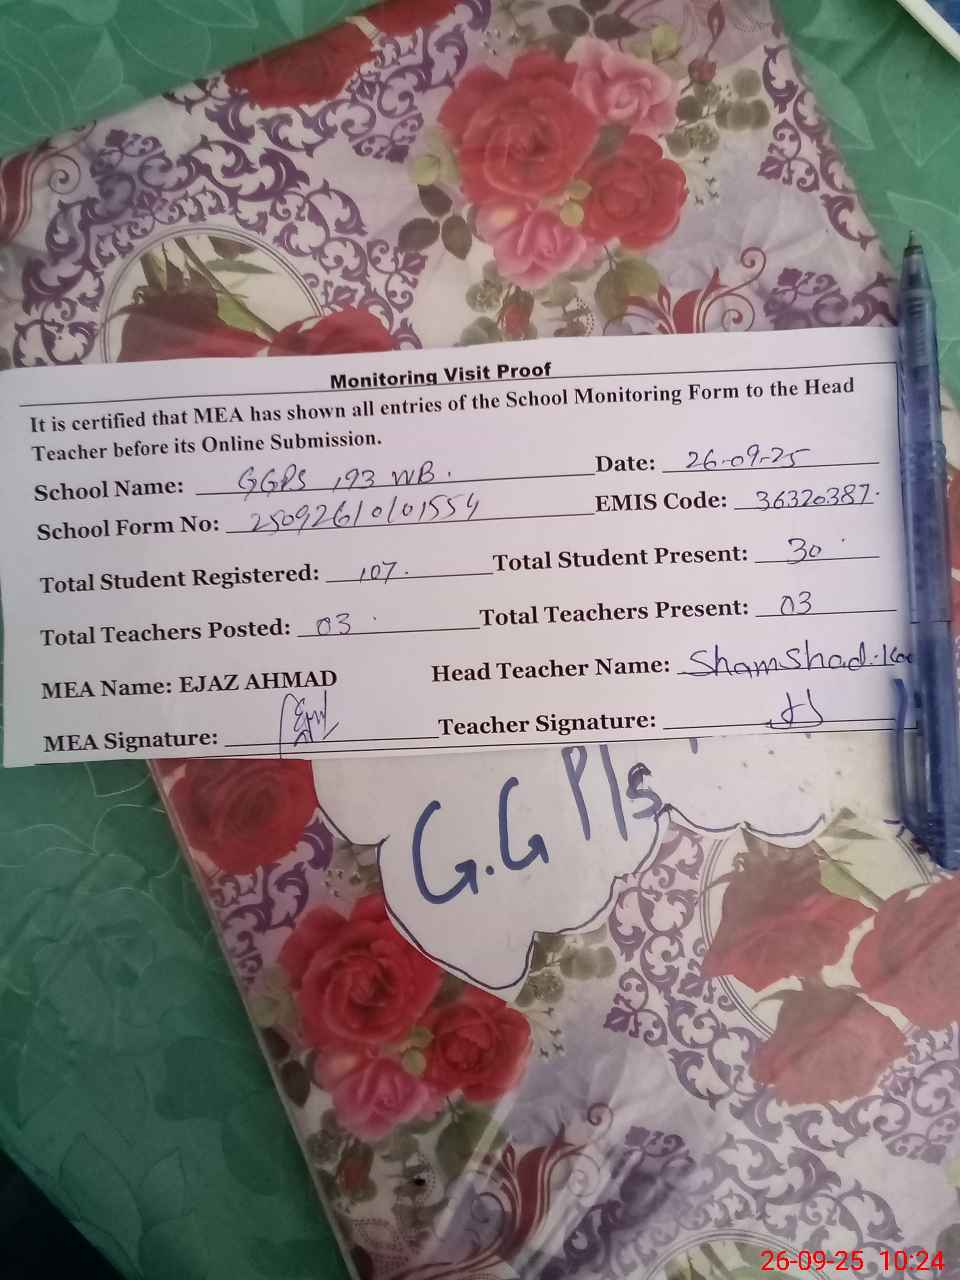 Monitoring Visit Proof
It is certified that MEA has shown all entries of the School Monitoring Form to the Head
Teacher before its Online Submission.
School Name: GGPS 193 WB. Date: 26-09-25
School Form No: 25092610101554 EMIS Code: 36320387.
Total Student Registered: 107. Total Student Present: 30
Total Teachers Posted: 03 Total Teachers Present: 03
MEA Name: EJAZ AHMAD Head Teacher Name: Shamshad.
MEA Signature: Teacher Signature:
G.G P/s
26-09-25 10:24